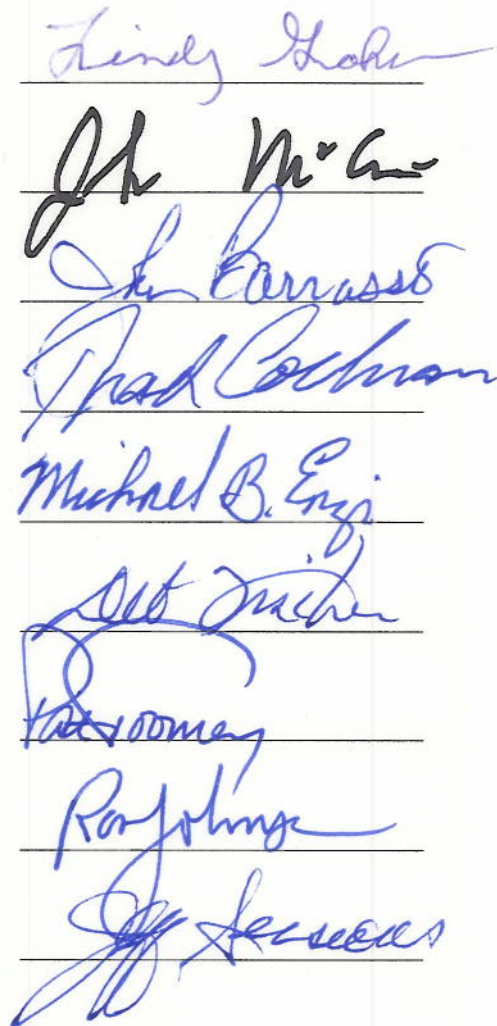 Lindsey Graham
John McCain
John Barrasso
Thad Cochran
Michael B. Enzi
Deb Fischer
Pat Toomey
Ron Johnson
Jeff Sessions